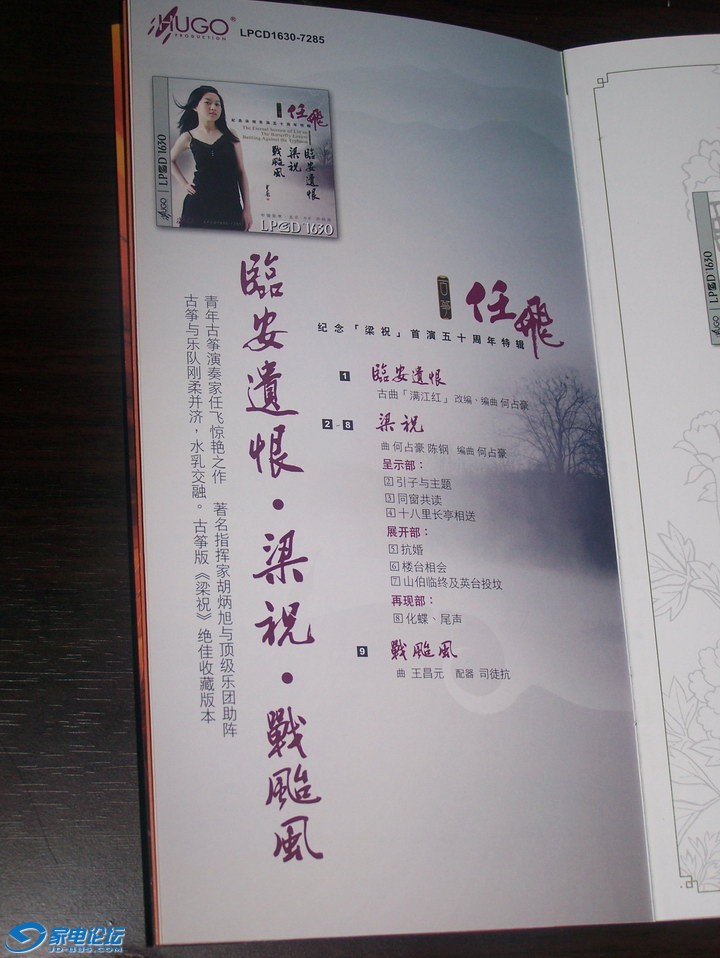 HUGO®
PRODUCTION
LPCD1630-7285
任飛
The Eternal Sorrow of Lin'an
The Butterfly Lovers
Battling Against the Typhoon
臨安遺恨
梁祝
戰颱風
HUGO | LPCD 1630
LPCD 1630
臨安遺恨·梁祝·戰颱風
青年古筝演奏家任飞惊艳之作 著名指挥家胡炳旭与顶级乐团助阵
古筝与乐队刚柔并济，水乳交融。古筝版《梁祝》绝佳收藏版本
古筝
任飛
纪念「梁祝」首演五十周年特辑
1 臨安遺恨
古曲「满江红」改编、编曲 何占豪
2 - 8 梁祝
曲 何占豪 陈钢 编曲 何占豪
呈示部：
2 引子与主题
3 同窗共读
4 十八里长亭相送
展开部：
5 抗婚
6 楼台相会
7 山伯临终及英台投坟
再现部：
8 化蝶、尾声
9 戰颱風
曲 王昌元 配器 司徒抗
HUGO | LPCD 1630
家电论坛
JD-BBS.COM